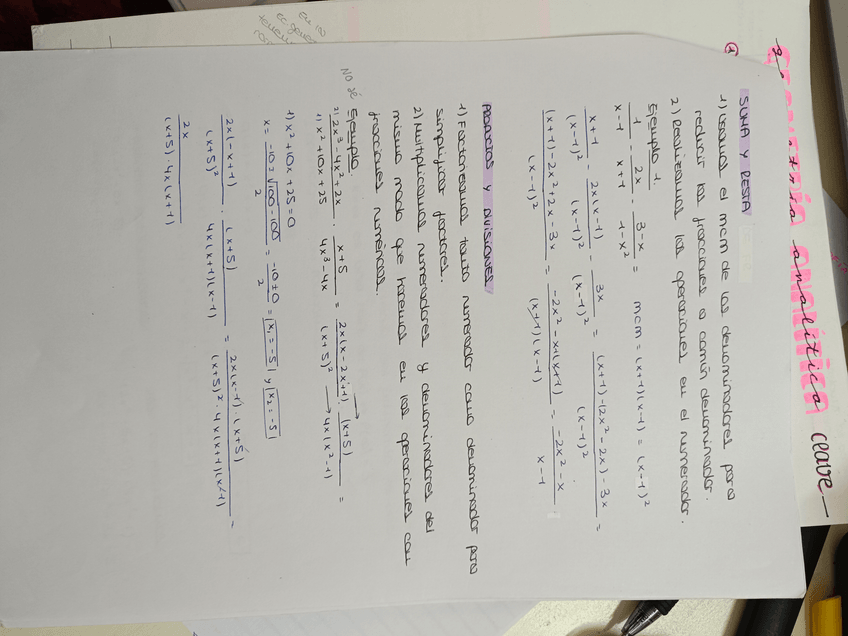 GEOMETRÍA ANALÍTICA
analítica clave
①
SUMA Y RESTA
1) Usamos el mcm de los denominadores para
reducir las fracciones a común denominador.
2) Realizamos las operaciones en el numerador.
Ejemplo 1.
1/(x-1) - 2x/(x+1) - (3-x)/(1-x²) = mcm = (x+1)(x-1) = (x-1)²
(x+1)/(x-1)² - 2x(x-1)/(x-1)² - 3x/(x-1)² = ((x+1)-(2x²-2x)-3x)/(x-1)² =
((x+1)-2x²+2x-3x)/(x-1)² = (-2x²-x+(x+1))/((x+1)(x-1)) = (-2x²-x)/(x-1)
PRODUCTOS Y DIVISIONES
1) Factorizamos tanto numerador como denominador para
simplificar factores.
2) Multiplicamos numeradores y denominadores del
mismo modo que haremos en las operaciones con
fracciones numéricas.
NO SÉ
Ejemplo.
2) (2x³-4x²+2x)/(1) x²+10x+25) · (x+5)/(4x³-4x) = 2x(x-2x+1)/(x+5)² · (x+5)/4x(x²-1) =
1) x²+10x+25=0
x = (-10±√100-100)/2 = (-10±0)/2 = x₁=-5 y x₂=-5
2x(-x+1)/(x+5)² · (x+5)/4x(x+1)(x-1) = 2x(x-1)·(x+5)/(x+5)²·4x(x+1)(x-1) =
2x/(x+5)·4x(x+1)